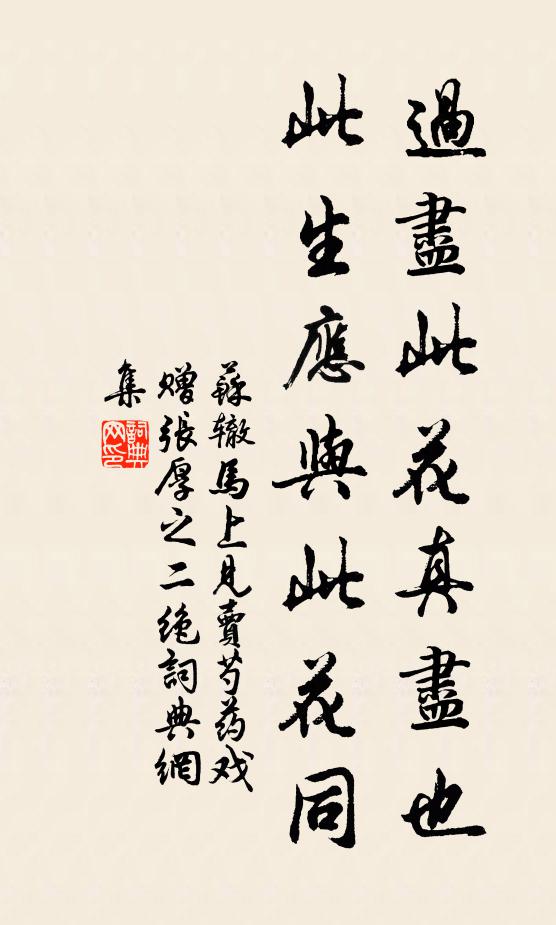 過盡此花真盡也
此生應與此花同
蘇辙馬上見賣芍药戏
赠張厚之二绝詞典網
集
詞典
网印